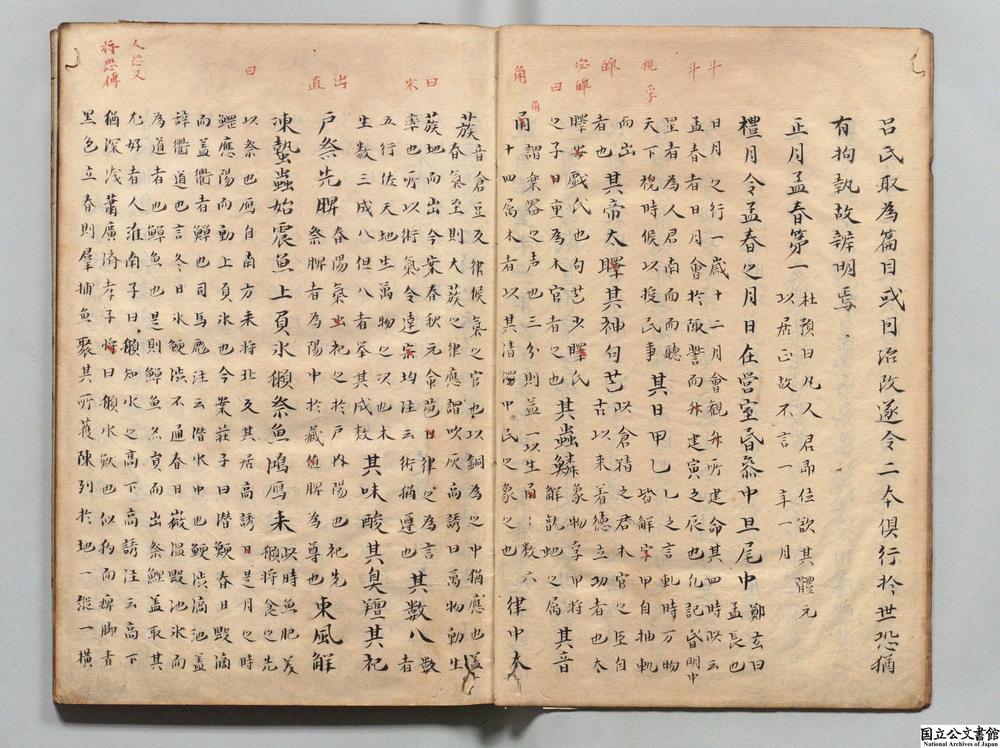 呂氏取為篇目或曰治改遂令二本俱行於世恐猶
有拘執故辨明焉
正月孟春第一 杜預曰凡人君即位欲其體元
以居正故不言一年一月
禮月令孟春之月日在營室昏參中旦尾中 鄭玄曰孟長也
日月之行一歲十二月會觀斗所建命其四時此云
孟春者日月會於諏訾而斗建寅之辰也凡記昏明中
星者為人君南面而聽天下視時候以授民事
其日甲乙 乙之言軋時万物皆解孚甲自抽軋
而出者也
其帝太皞其神句芒 此倉精之君木官之臣自
古以来着德立功者也太
皞宓戲氏也句芒少皞氏
之子曰重為木官
其蟲鱗 象物孚甲將解龍蛇之属
其音角 謂樂器之声也三分則益一以生角角数六
十四属木者以其清濁中民之象也
律中大
蔟 音倉豆反律候氣之官也以銅為之中猶應也孟
春氣至則大蔟之律應謂吹灰高誘曰万物動生
蔟地而出今案春秋元命苞曰律之為言
率也所以術氣令達宋均注云術猶遵也
其数八 数者
五行佐天地生万物之次也木
生数三成八但八者举其成数
其味酸其臭羶其祀
戶祭先脾 春陽氣出祀之於戶内陽也祀先
祭脾者為陽中於藏直脾為尊也
東風解
凍蟄蟲始震魚上負氷獺祭魚鴻鴈来 此時魚肥美獺將食之先
以祭也鴈自南方来将北反其居高誘曰是月之時
鯉應陽而動上負氷也今案莊子曰潛鯁春日毀滴
而盖衢者鱓也司馬彪注云潛水中也鯁渋滴池盖
辞衢道也言冬日氷鯁渋不通春日微温毀池氷而
為道者也鱓魚也是則鱓魚亦負而出祭鯉盖取其
尤好者人淮南子曰獺知水之高下高誘注云高下
猶深浅蕭廣濟孝子将曰獺水獣也似狗而痺脚青
黒色立春則羣捕魚聚其所獲陳列於地一縦一横
斗
斗
視
孚
皞
宓皞
曰
角
角
曰
宋
出
直
曰
人恐又
将恐傳
国立公文書館
National Archives of Japan